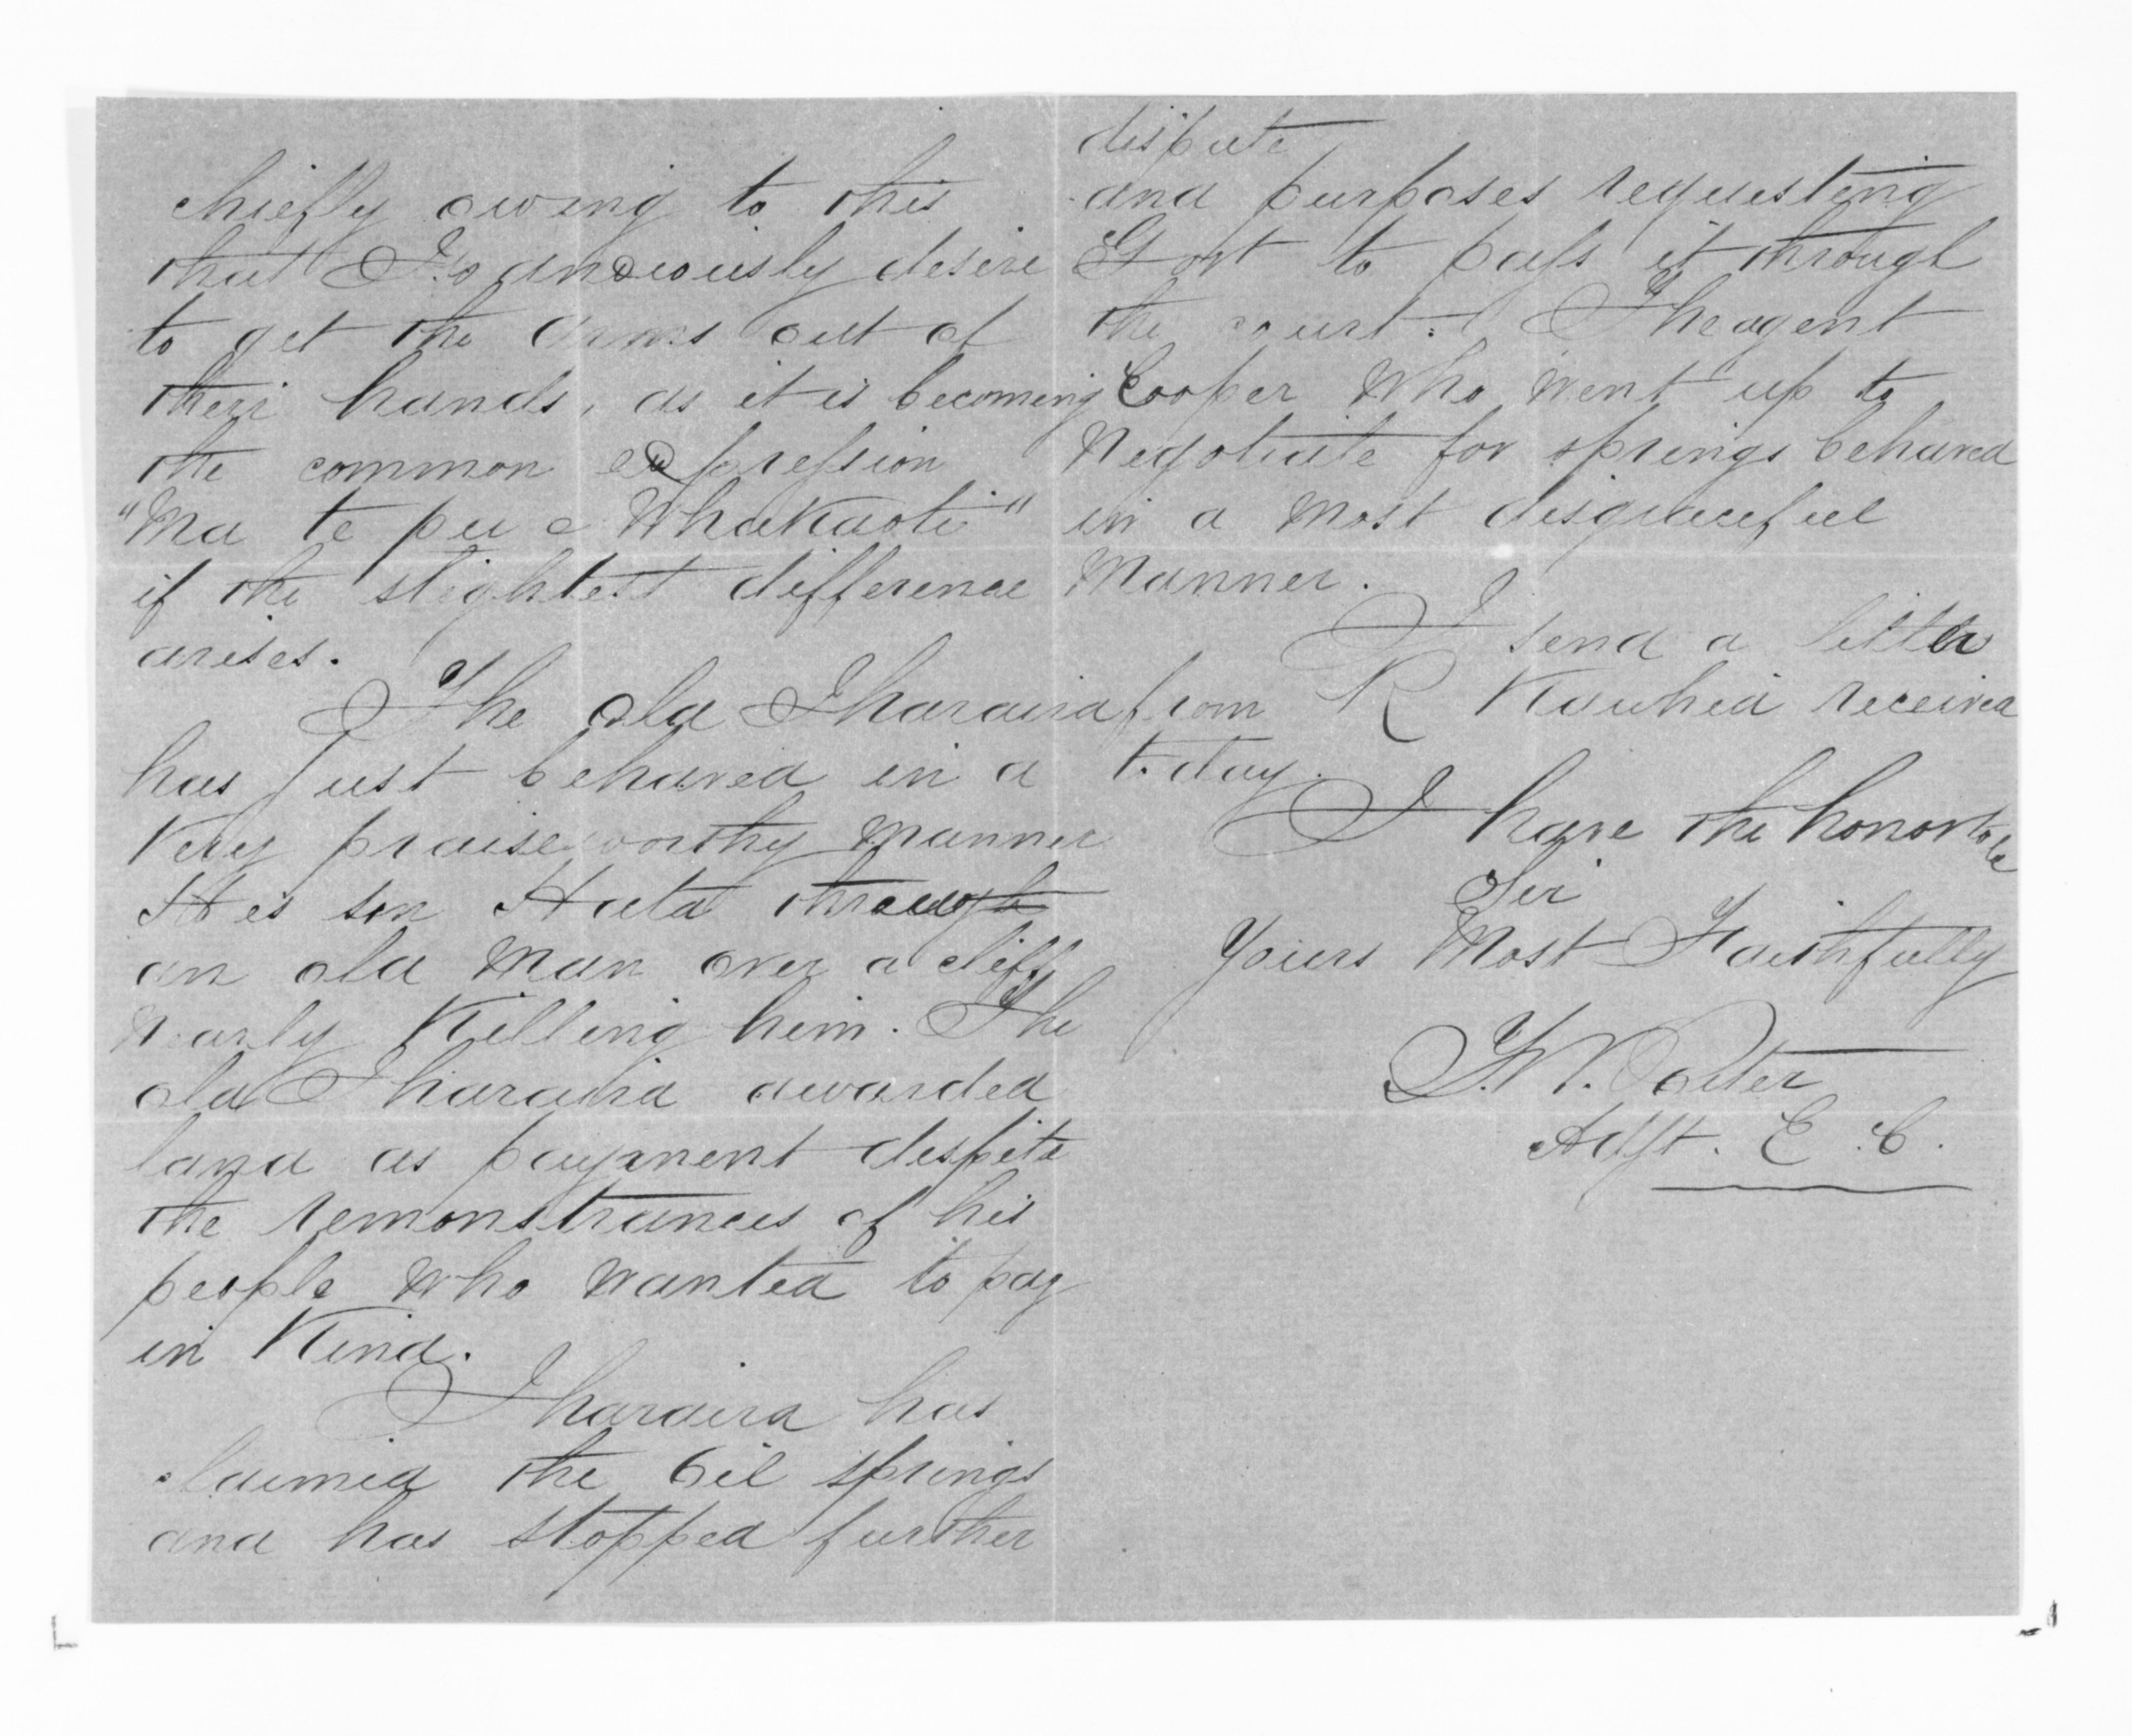 chiefly owing to this
that I so anxiously desire
to get the arms out of
their hands, as it is becoming
the common expression
"Ma te pu e Whakaoti"
if the slightest difference
arises.
The old Iharaira
has just behaved in a
very praiseworthy manner
His son Huta through
an old man over a cliff
nearly killing him. The
old Iharaira awarded
land as payment despite
the remonstrances of his
people who wanted to pay
in kind.
Iharaira has
claimed the Oil springs
and has stopped further
dispute
and purposes requesting
Govt to pass it through
the court. The agent
Cooper who went up to
negotiate for springs behaved
in a most disgraceful
manner.
I send a letter
from R Kawhia received
today.
I have the honor to be
Sir
Yours Most Faithfully
T.W. Porter
Adjt. E.C.